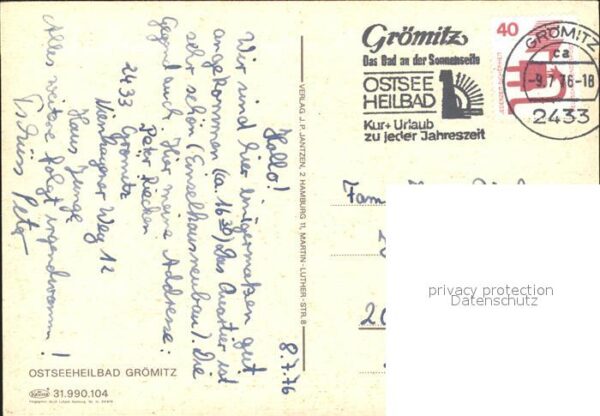 8.7.76
Hallo!
Wir sind hier einigermaßen gut
angekommen (ca 16³⁰) Das Quartier ist
sehr schön (Einzelhausneubau). Die
Gegend auch. Hier meine Addresse:
Peter
2433 Grömitz
Weg 12
Haus
Alles weitere folgt irgendwann!
Tschüss Peter
VERLAG J. P. JANTZEN, 2 HAMBURG 11, MARTIN-LUTHER-STR. 8
OSTSEEHEILBAD GRÖMITZ
31.990.104
Grömitz
Das Bad an der Sonnenseite
OSTSEE
HEILBAD
Kur + Urlaub
zu jeder Jahreszeit
40
GRÖMITZ
ca
-9.7.76-18
2433
Fam.
privacy protection
Datenschutz